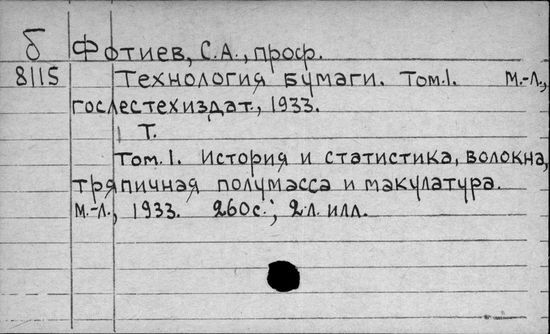 б Фотиев, С.А., проф.
8115 Технология бумаги. Том.1. М.-Л.,
гослестехиздат., 1933.
1 Т.
Том.1. История и статистика, волокна,
тряпичная полумасса и макулатура.
М.-Л., 1933. 260с.; 2л. илл.